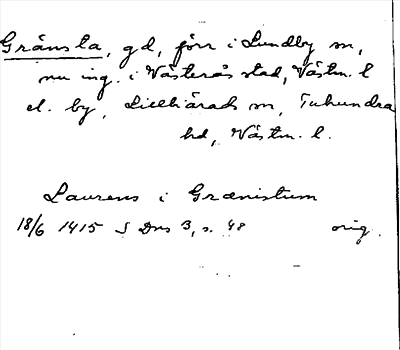 Gränsta, gd, förr i Lundby sn,
nu ing. i Västerås stad, Västm. l
el. by, Lillhärads sn, Tuhundra
hd, Västm. l.
Laurens i Grænistum
18/6 1415 S Dns 3, s. 48 orig.